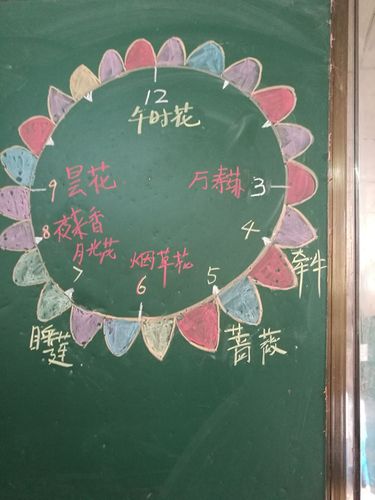 12
午时花
万寿菊
3
4
牵牛
5
蔷薇
烟草花
6
7
睡莲
月光花
8
夜来香
9
昙花